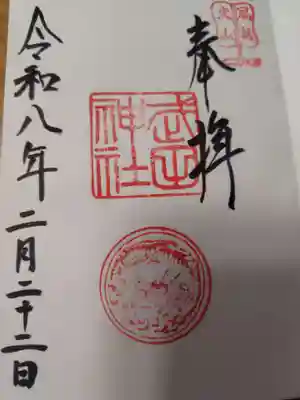 奉拝
神社
令和八年二月二十二日